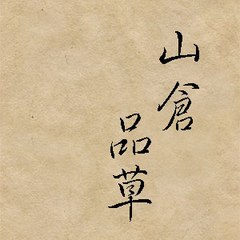 山倉
品草